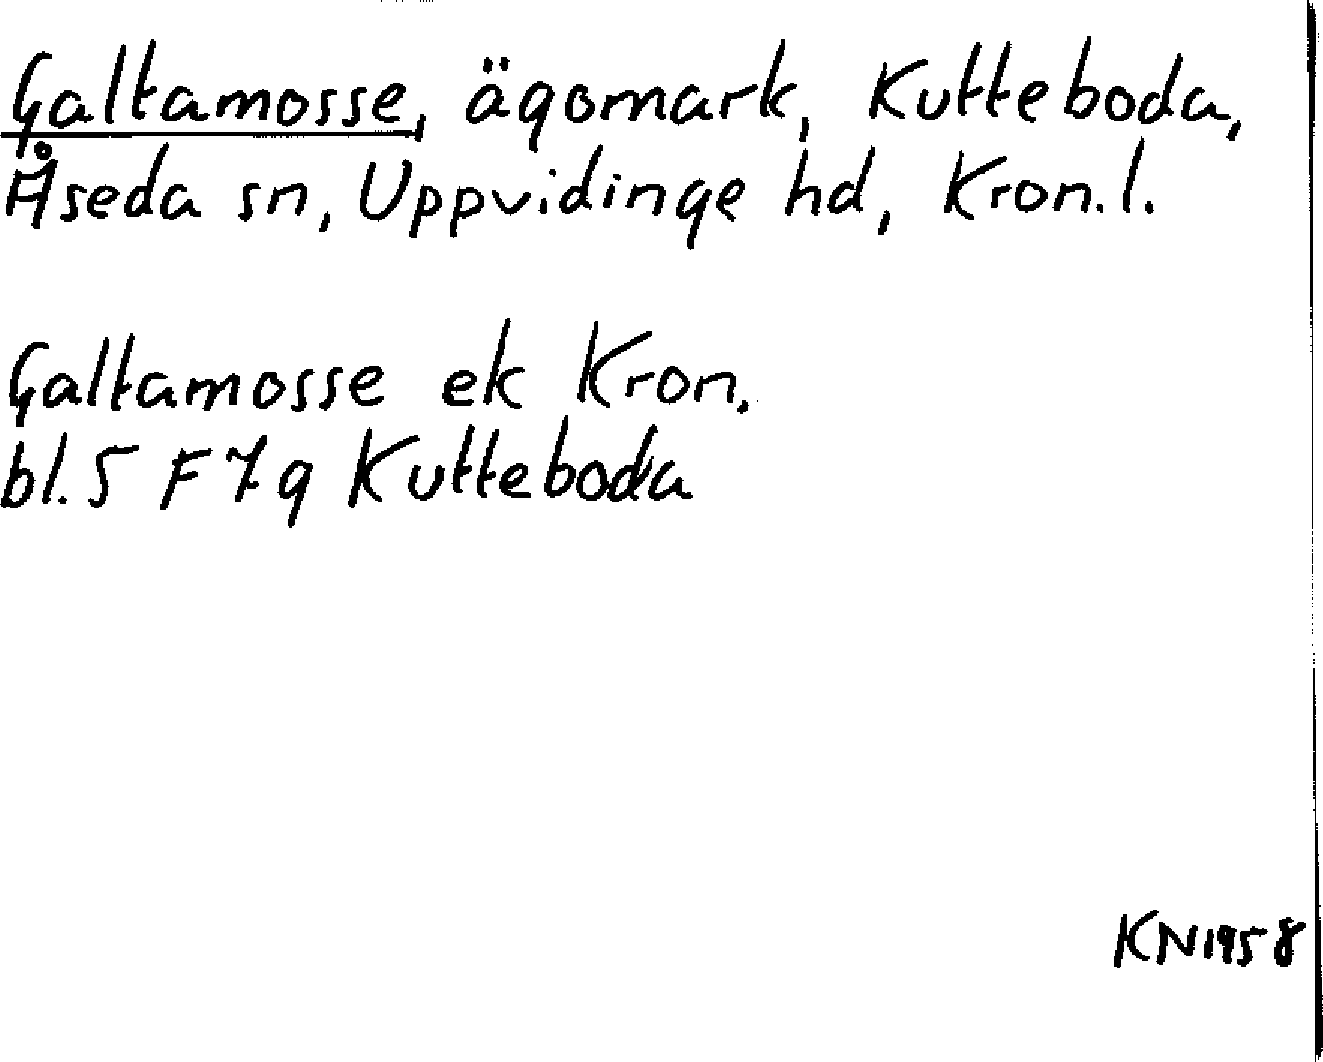 Galtamosse, ägomark, Kutteboda,
Åseda sn, Uppvidinge hd, Kron.l.
Galtamosse ek Kron.
bl. 5 F 7 g Kutteboda
KN 1958